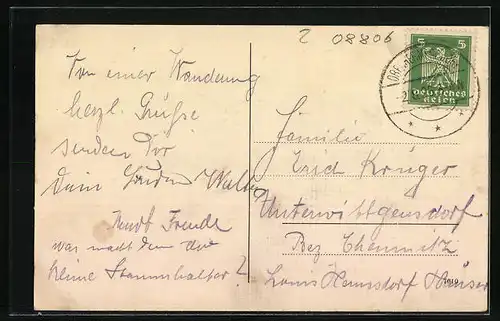 Von einer Wanderung
herzl. Grüße
senden Dir
Dein
Kurt Freude
was macht denn der
kleine Stammhalter?
2 08806
5 5
Deutsches
Reich
Familie
Erich Krüger
Unterwittgensdorf
Bez Chemnitz
Louis Hermsdorf Häuser